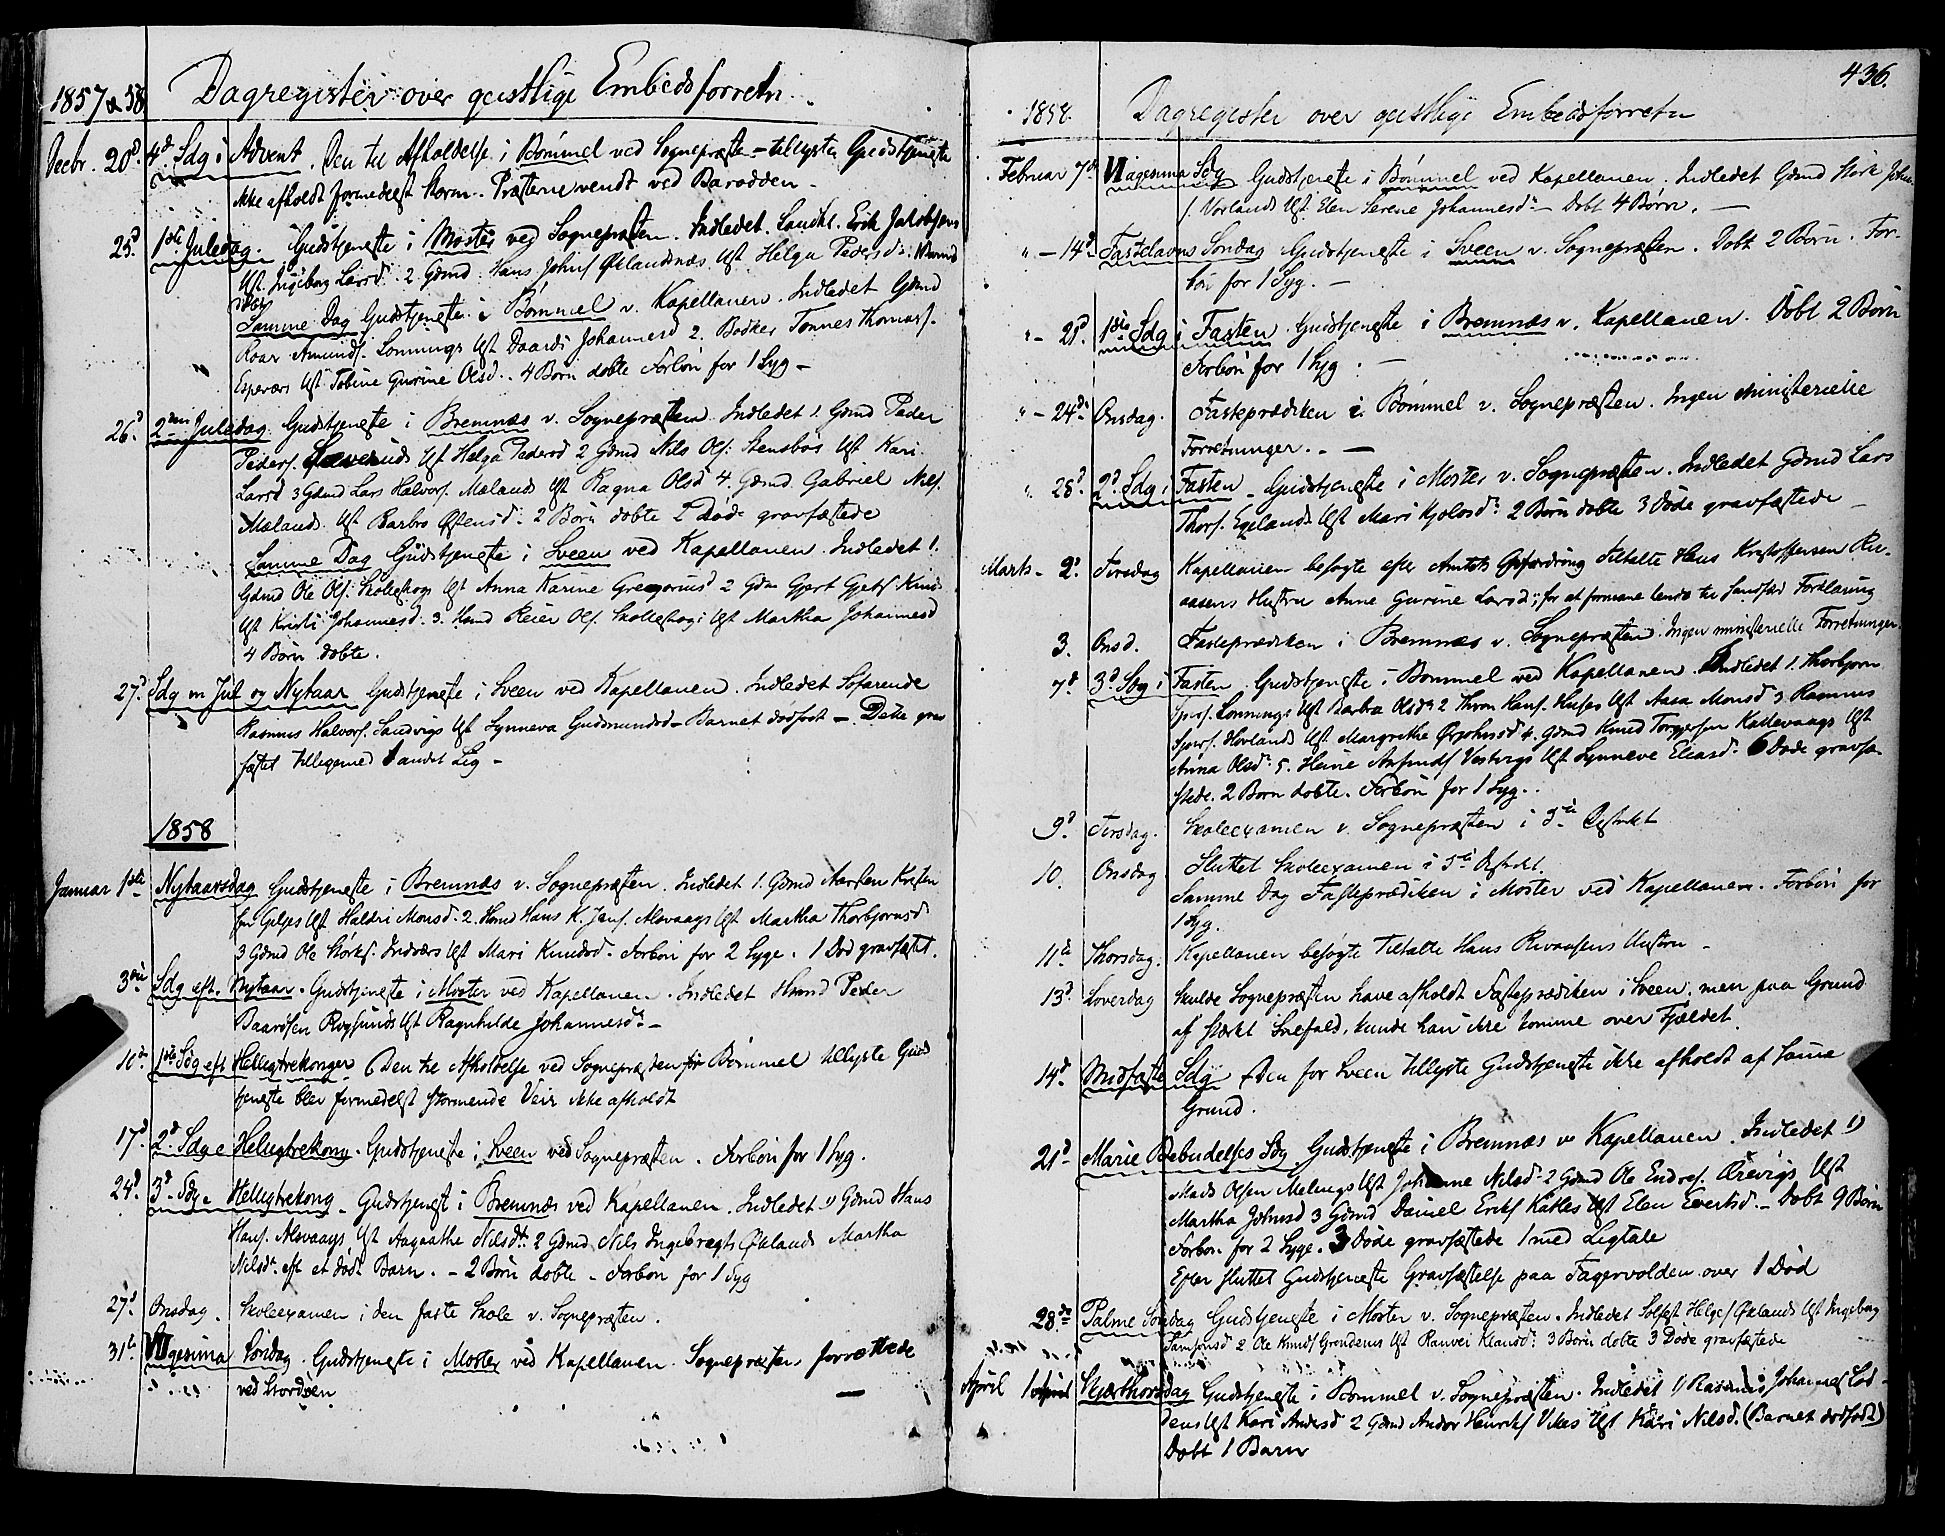 1857 & 58 Dagregister over geistlige Embedsforretn.
Decbr. 20d 4de Sdg i Advent. Den til Afholdelse i Bömmel ved Sognepræst- tillyste Gudstjeneste
ikke afholdt formedelst Storm. Præsterne vendt ved Barodden -
25d 1ste Juledag. Gudstjeneste i Moster ved Sognepræsten. Indledet. Erik Jakobsens
Ust. Ingeborg Larsd. 2 Gdmd Hans Johns. Ust Helga Pedersd.
Samme Dag Gudstjeneste i Bömmel v. Kapellanen. Indledet Gdmd
Roar Amunds. Lonnings Ust Johannesd 2. Bødker Tonnes Thomass.
Espevær Ust Tobine Gurine Olsd. 4 Børn døbte Forbön for 1 Syg -
26d 2den Juledag. Gudstjeneste i Bremnæs v. Sognepræsten. Indledet 1. Gdmd Peder
Peders. Ust Helga Pedersd 2 Gdmd Nils Ols. Stensbøs Ust Kari
Larsd 3 Gdmd Lars Halvors. Mælands Ust Ragna Olsd 4. Gdmd. Gabriel Nils.
Mælands Ust Barbro Østensd. 2 Börn döbte 2 Døde gravfæstede
Samme Dag Gudstjeneste i Sveen ved Kapellanen. Indledet 1.
Gdmd Ole Ols. Ust Anna Karine Gregorius 2 Gdm Gjert
Ust Kristi Johannesd. 3. Hmd Reier Ols. Ust Martha Johannesd
4 Børn döbte.
27d Sdg m Jul og Nytaar Gudstjeneste i Sveen ved Kapellanen. Indledet Söfarende
Rasmus Halvors. Sandvigs Ust Synneva Gudmundsd - Barnet dødfødt - Dette grav
fæstet tilligemed 1 andet Lig -
1858
Januar 1ste Nytaarsdag Gudstjeneste i Bremnæs v. Sognepræsten. Indledet 1. Gdmd
Ust Haldri Monsd. 2. Hmd Hans K. Alsvaags Ust Martha Thorbjornsd
3 Gdmd Ole Størks. Indvær Ust Mari Knudsd. Forbön for 2 Syge. 1 Död gravfæstet.
3die Sdg eft. Nytaar. Gudstjeneste i Moster ved Kapellanen. Indledet Hmd Peder
Baardsen Røgsunds Ust Ragnhilde Johannesd -
10de 1ste Sdg eft Helligtrekonger. Den til Afholdelse ved Sognepræsten for Bömmel tillyste Guds
tjeneste blev formedelst stormende Veir ikke afholdt
17d 2d Sdg e Helligtrekong. Gudstjeneste i Sveen ved Sognepræsten. Forbön for 1 Syg.
24d 3d Sdg e Helligtrekong. Gudstjenest i Bremnæs ved Kapellanen. Indledet 1) Gdmd Hans
Hans. Alsvaags Ust Aagaathe Nilsd. 2 Gdmd Nils Ingebregts Øklands Martha
Nilsd. eft et død Barn. - 2 Börn döbte - Forbön for 1 Syg
27d Onsdag. Skoleexamen i den faste Skole v. Sognepræsten.
31te gesima Söndag. Gudstjeneste i Moster ved Kapellanen. Sognepræsten forrettede
ved
436.
1858. Dagregister over geistlige Embedsforretn
Februar 7de agesima Sdg Gudstjeneste i Bömmel ved Kapellanen. Indledet Gdmd Størk Johan-
s. Vorlands Ust Elen Serene Johannesd - Døbt 4 Börn. -
" - 14d Fastelavns Söndag Gudstjeneste i Sveen v. Sognepræsten. Döbt 2 Börn. For-
bön for 1 Syg. -
" - 21d 1ste Sdg i Fasten. Gudstjeneste i Bremnæs v. Kapellanen. Döbt 2 Börn
Forbön for 1 Syg. -
" - 24de Onsdag. Fasteprædiken i Bömmel v. Sognepræsten. Ingen ministerielle
Forretninger. -
" 28d 2d Sdg i Fasten - Gudstjeneste i Moster v. Sognepræsten. Indledet Gdmd Lars
Thors. Egelands Ust Mari 2 Börn døbte 3 Døde gravfæstede -
Marts - 2d Tirsdag Kapellanen besøgte efter Amtets Opfordring Tiltalte Hans Kristoffersen
Hustru Anne Gurine Larsd, for at formane hende til Sandfær Forklaring
3. Onsd. Fasteprædiken i Bremnæs v. Sognepræsten. Ingen ministerielle Forretninger.
7d 3d Sdg i Fasten. Gudstjeneste i Bömmel ved Kapellanen. Indledet 1. Thorbjørn
Lonnings Ust Barbra Olsd 2 Hans. Huses Ust Aasa Monsd 3 Rasmus
Hovlands Ust Margrethe 4. Gdmd Knud Torgersen Kallevaags Ust
Anna Olsd. 5. Heine Vestvigs Ust Synneve Eliasd. 6 Døde gravfæ-
stede. 2 Børn döbte. Forbön for 1 Syg.
9d Tirsdag. Skoleexamen v. Sognepræsten i 5te Distrikt
10. Onsdag Sluttet Skoleexamen i 5te Distrikt.
Samme Dag Fasteprædiken i Moster ved Kapellanen. Forbön for
1 Syg.
11te Thorsdag. Kapellanen besøgte Tiltalte Hans Hustru -
13d Löverdag Skulde Sognepræsten have afholdt Fasteprædiken i Sveen, men paa Grund
af stærkt Snefald, kunde han ikke komme over Fjeldet.
14d Midfaste Sdg Den for Sveen tillyste Gudstjeneste ikke afholdt af samme
Grund.
21d Marie Bebudelses Sdg Gudstjeneste i Bremnæs v Kapellanen. Indledet 1)
Mads Olsen Melings Ust Johanne Nilsd. 2 Gdmd Ole Endres. Ust
Martha Johnsd 3 Gdmd Daniel Eriks Katles Ust Elen Evertsd. - Døbt 9 Börn
Forbön for 2 Syge. 3 Døde gravfæstede 1 med Ligtale
Efter sluttet Gudstjeneste Gravfæstelse paa Fagervolden over 1 Død
28de Palme Söndag Gudstjeneste i Moster v. Sognepræsten. Indledet Helge Öklands Ust Ingeborg
Samsonsd 2 Ole Knuds Ust Ranvei 3 Börn döbte 3 Døde gravfæstede
April 1 April Skjærthorsdag Gudstjeneste i Bömmel v. Sognepræsten. Indledet 1) Rasmus Johannes
Ust Kari Andersd 2 Gdmd Andor Henriks Vikes Ust Kari Nilsd. (Barnet dødfødt)
Døbt 1 Barn